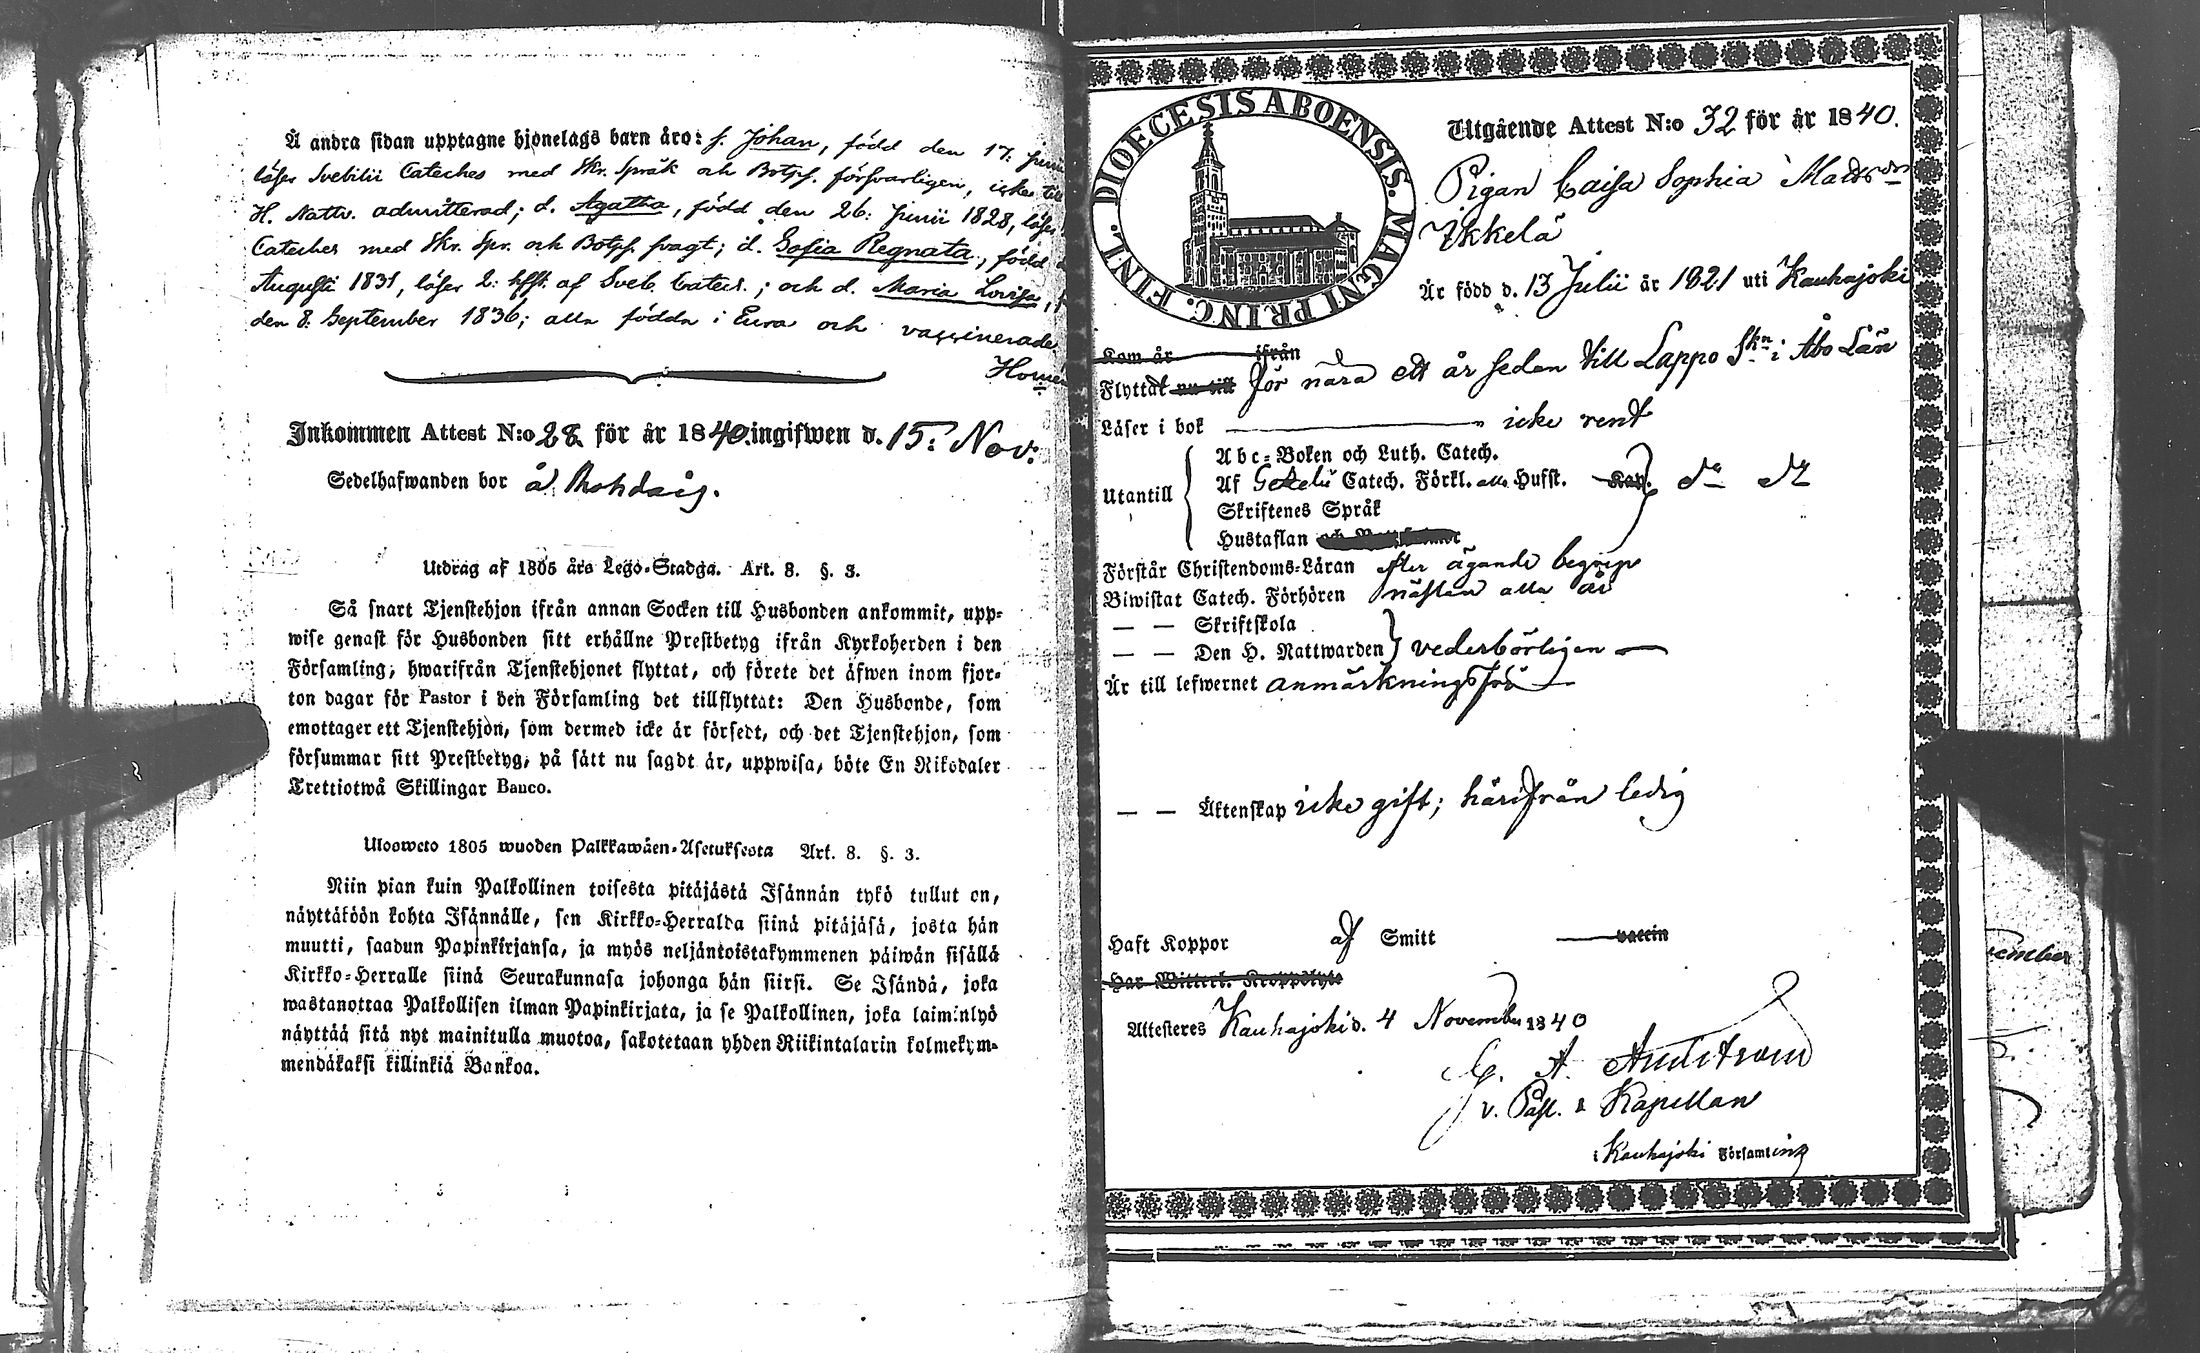 Å andra sidan upptagne hjonelags barn äro: s. Johan, född den 17: Junii
läser Svebilii Cateches med Skr. Språk och Botps. försvarligen, icke till
H. Nattv. admitterad; d. Agatha, född den 26: Junii 1828, läser
Cateches med Skr. Spr. och Botps. svagt; d. Sofia Regnata, född
Augusti 1831, läser 2: Hfst. af Sveb. Catech.; och d. Maria Lovisa,
den 8. September 1836; alla födda i Eura och vaccinerade
Inkommen Attest N:o 28 för år 1840 ingifwen d. 15: Nov:
Sedelhafwanden bor å
Utdrag af 1805 års Lego-Stadga. Art. 8. §. 3.
Så snart Tjenstehjon ifrån annan Socken till Husbonden ankommit, upp-
wise genast för Husbonden sitt erhållne Prestbetyg ifrån Kyrkoherden i den
Församling, hwarifrån Tjenstehjonet flyttat, och förete det äfwen inom fjor-
ton dagar för Pastor i den Församling det tillflyttat: Den Husbonde, som
emottager ett Tjenstehjon, som dermed icke är försedt, och det Tjenstehjon, som
försummar sitt Prestbetyg, på sätt nu sagdt är, uppwisa, böte En Riksdaler
Trettiotwå Skillingar Banco.
Ulosweto 1805 wuoden Palkkawäen-Asetuksesta Art. 8. §. 3.
Niin pian kuin Palkollinen toisesta pitäjästä Isännän tykö tullut on,
näyttäköön kohta Isännälle, sen Kirkko-Herralda siinä pitäjäsä, josta hän
muutti, saadun Papinkirjansa, ja myös neljäntoistakymmenen päiwän sisällä
Kirkko-Herralle siinä Seurakunnasa johonga hän siirsi. Se Isändä, joka
wastanottaa Palkollisen ilman Papinkirjata, ja se Palkollinen, joka laiminlyö
näyttää sitä nyt mainitulla muotoa, sakotetaan yhden Riikintalarin kolmekym-
mendäkaksi killinkiä Bankoa.
DIOECESIS ABOENSIS. MAGNI PRINC. FINL.
Utgående Attest N:o 32 för år 1840.
Pigan Caisa Sophia Matsdr
Ikkelä
Är född d. 13 Julii år 1821 uti Kauhajoki
Kom år ifrån
Flyttat nu till för nära ett år sedan till Lappo Skn i Åbo Län
Läser i bok icke rent
Abc-Boken och Luth. Catech.
Utantill Af Gezelii Catech. Förkl. alla Hufst. Kap. do do
Skriftenes Språk
Hustaflan
Förstår Christendoms-Läran efter ägande begrep
Biwistat Catech. Förhören nästan alla år
— — Skriftskola
— — Den H. Nattwarden vederbörligen
Är till lefwernet anmärkningsfri
— — Äktenskap icke gift; härifrån ledig
Haft Koppor af Smitt vaccin
Har Witterl. Kroppslyte
Attesteres Kauhajoki d. 4 November 1840
v. Past. & Kapellan
i Kauhajoki Församling